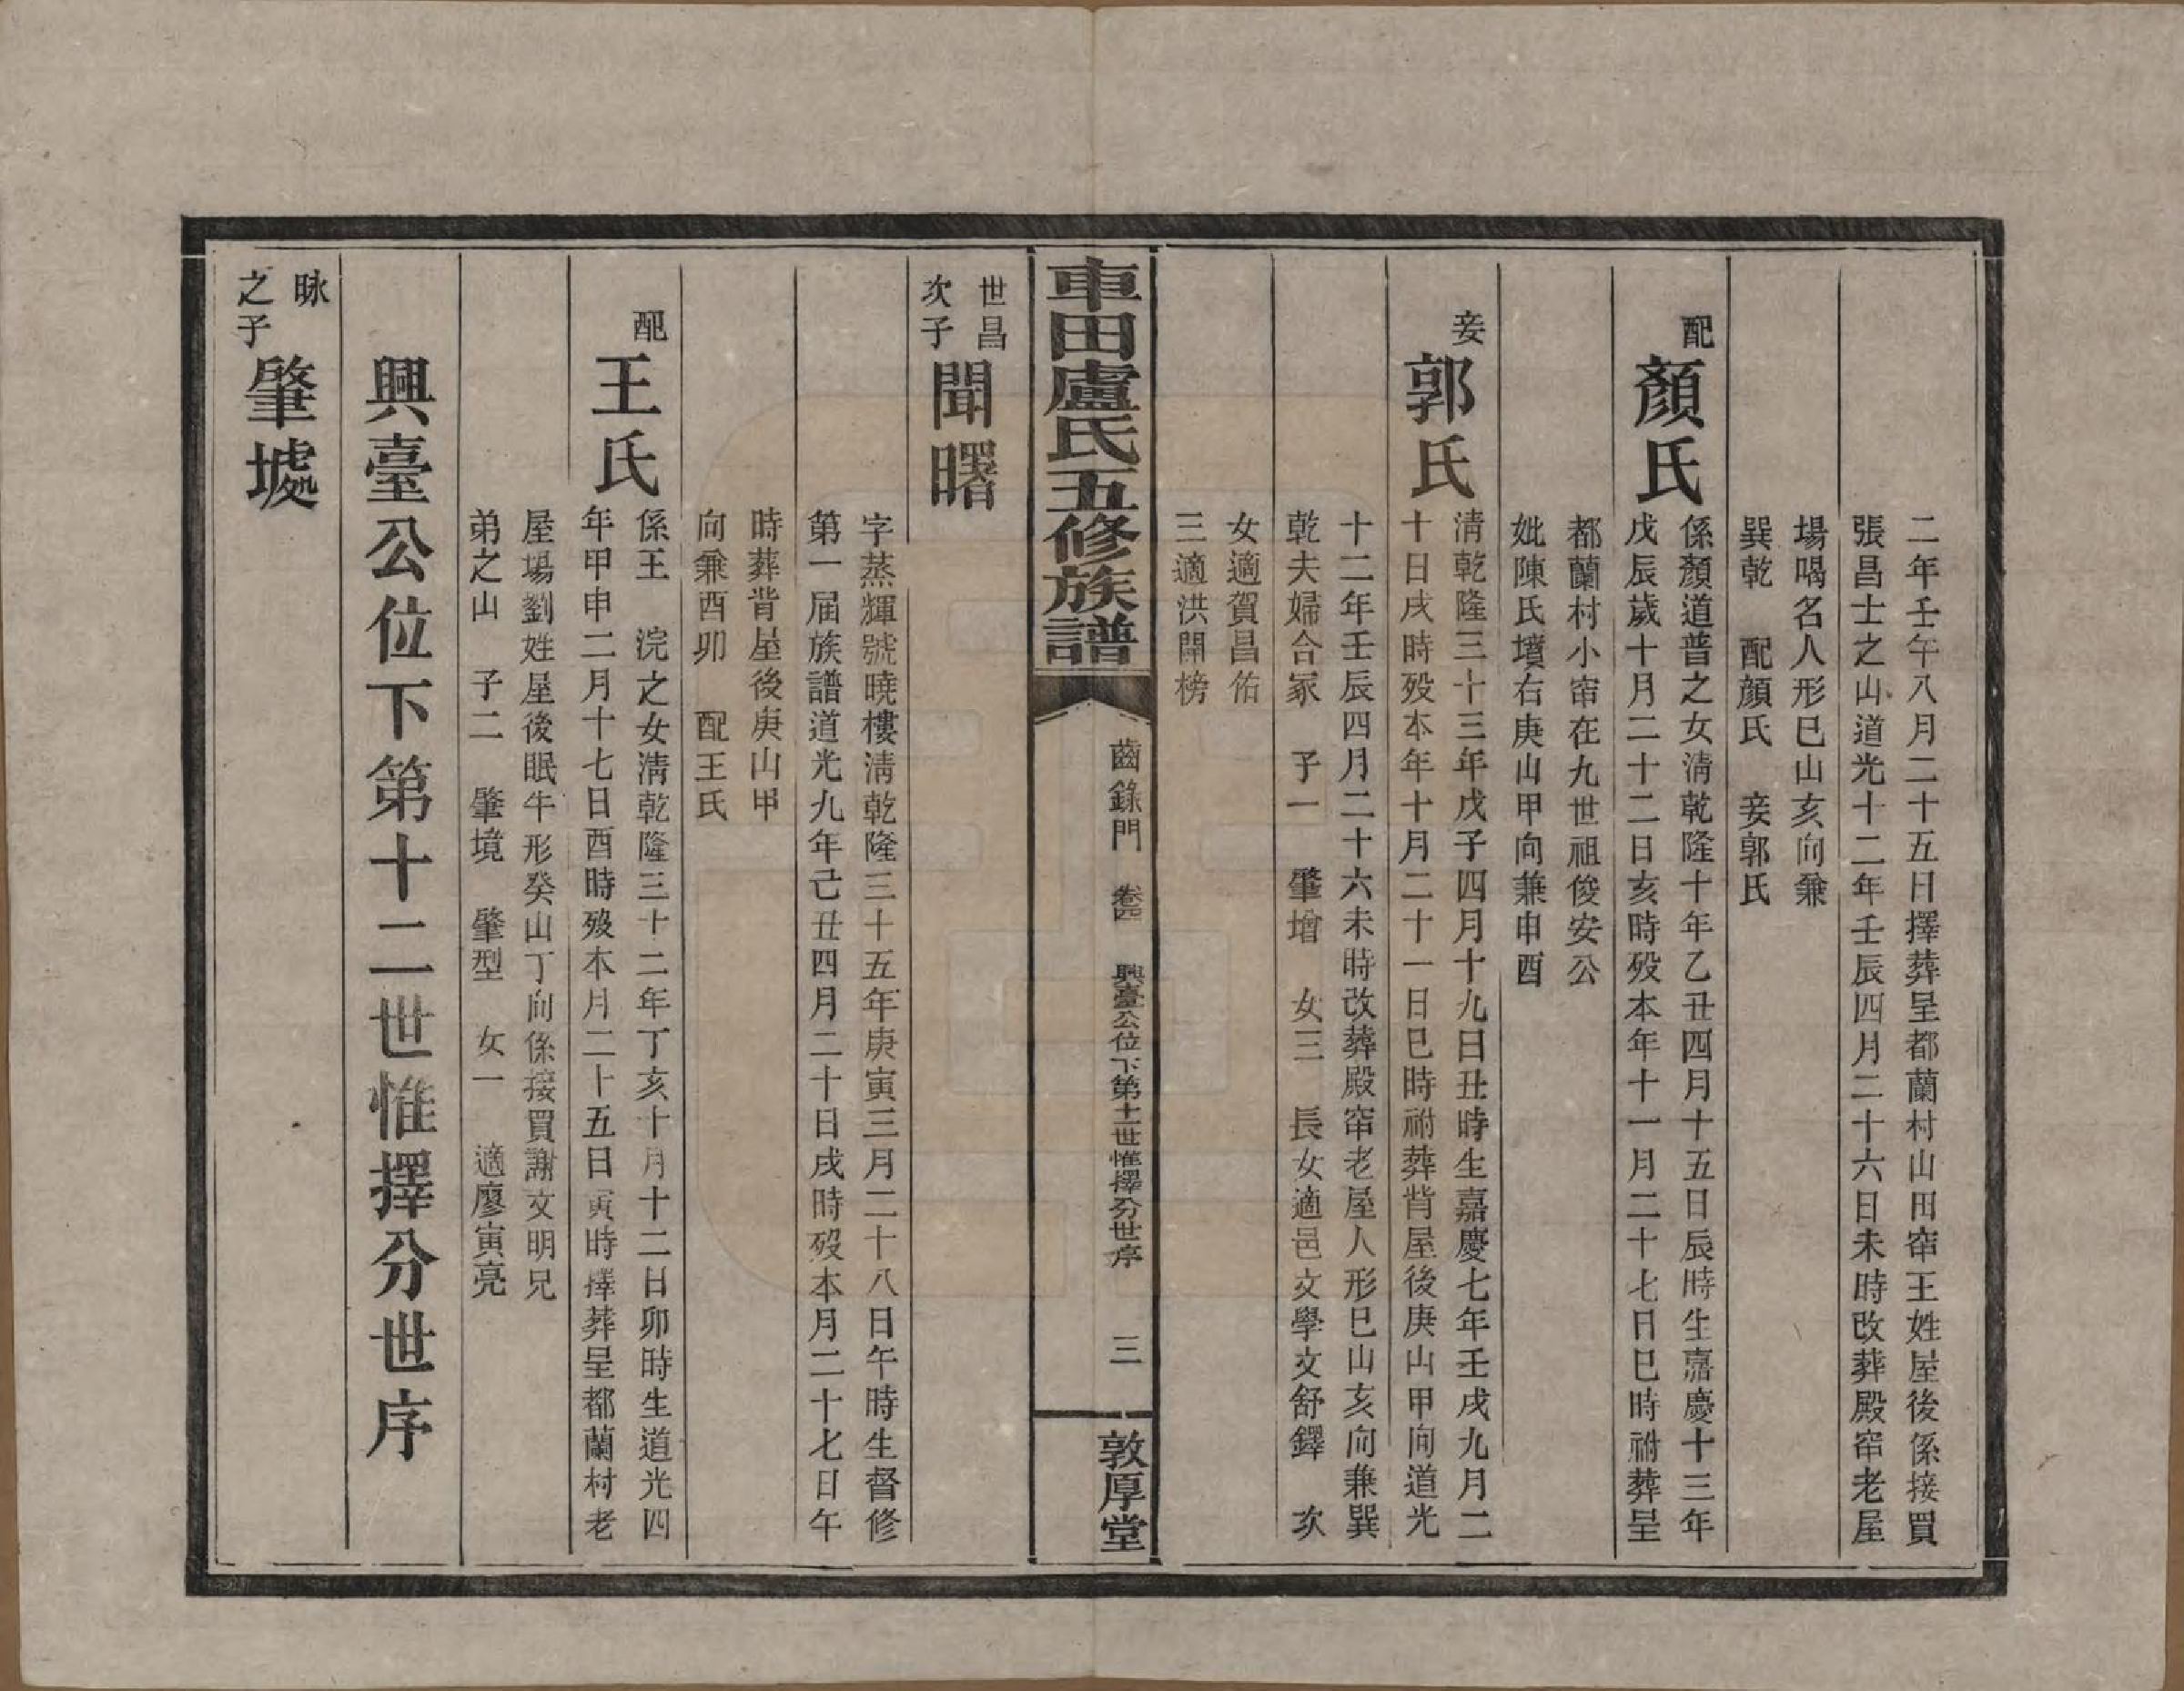 二年壬午八月二十五日擇葬呈都蘭村山田窀王姓屋後係接買
張昌士之山道光十二年壬辰四月二十六日未時改葬殿窀老屋
場喝名人形巳山亥向兼
巽乾　配顏氏　妾郭氏
配
顏氏
係顏道普之女清乾隆十年乙丑四月十五日辰時生嘉慶十三年
戊辰歲十月二十二日亥時歿本年十一月二十七日巳時祔葬呈
都蘭村小窀在九世祖俊安公
妣陳氏墳右庚山甲向兼申酉
妾
郭氏
清乾隆三十三年戊子四月十九日丑時生嘉慶七年壬戌九月二
十日戌時歿本年十月二十一日巳時祔葬背屋後庚山甲向道光
十二年壬辰四月二十六未時改葬殿窀老屋人形巳山亥向兼巽
乾夫婦合冢　子一　肇增　女三　長女適邑文學文舒鐸　次
女適賀昌佑
三適洪開榜
車田盧氏五修族譜
齒錄門　卷四　興臺公位下第十二世惟擇分世序　三
敦厚堂
世昌
次子
聞曙
字蒸輝號曉樓清乾隆三十五年庚寅三月二十八日午時生督修
第一届族譜道光九年己丑四月二十日戌時歿本月二十七日午
時葬背屋後庚山甲
向兼酉卯　配王氏
配
王氏
係王　浣之女清乾隆三十二年丁亥十月十二日卯時生道光四
年甲申二月十七日酉時歿本月二十五日寅時擇葬呈都蘭村老
屋場劉姓屋後眠牛形癸山丁向係接買謝文明兄
弟之山　子二　肇境　肇型　女一　適廖寅亮
興臺公位下第十二世惟擇分世序
昹
之子
肇墟